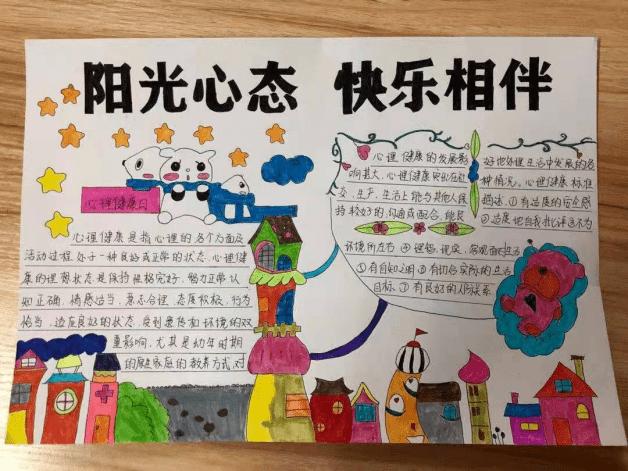 阳光心态 快乐相伴
心理健康日
心理健康是指心理的各个方面及
活动过程处于一种良好或正常的状态.心理健
康的理想状态是保持性格完好、智力正常、认
知正确、情感适当、意志合理、态度积极、行为
恰当、适应良好的状态。受到遗传和环境的双
重影响,尤其是幼年时期
的原生家庭的教养方式,对
心理健康的发展影
响甚大。心理健康突出在社
交、生产、生活上能与其他人保
持较好的沟通或配合,能良
好地处理生活中发展的各
种情况。心理健康标准
描述:①有适度的安全感
②适度地自我批评
环境所左右
④理智,现实,客观
①有自知之明③有切合实际的生活
目标,①有良好的人际关系